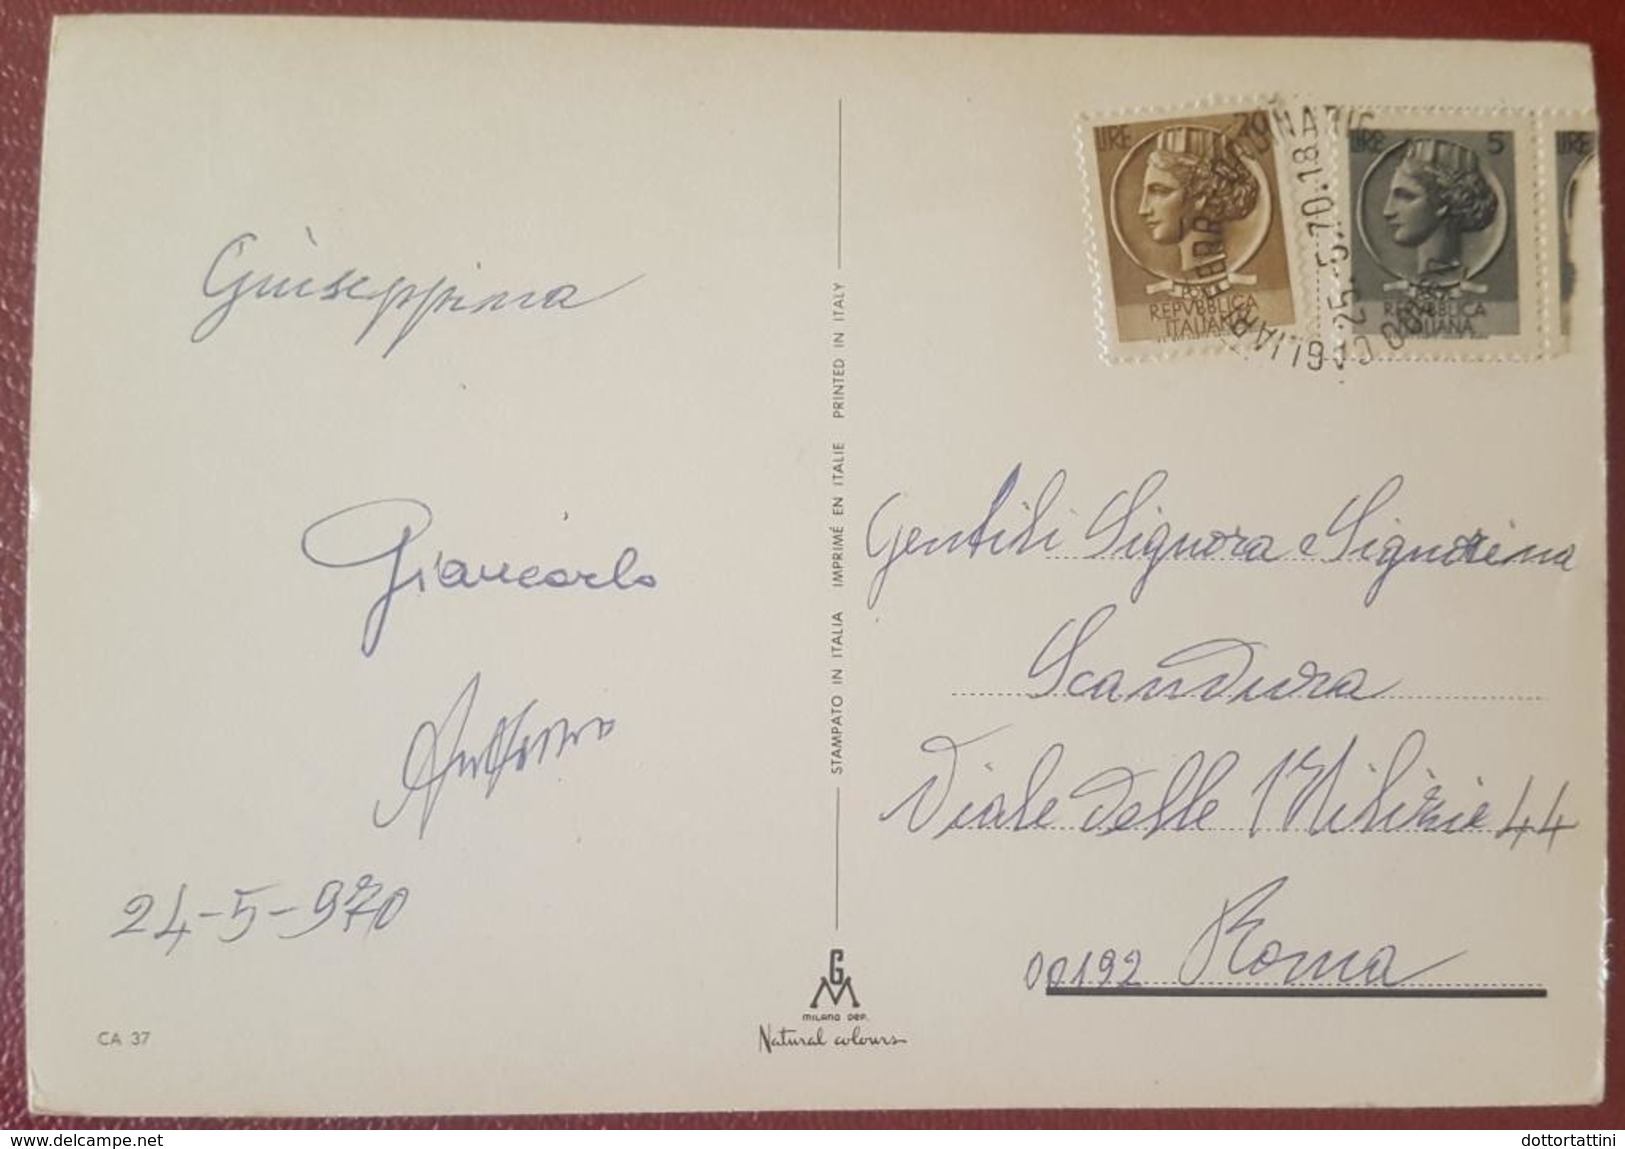 Giuseppina
Giancarlo
Antonino
24-5-970
CA 37
STAMPATO IN ITALIA IMPRIMÉ EN ITALIE PRINTED IN ITALY
GM
MILANO DEP.
Natural colours
LIRE
REPVBBLICA
ITALIANA
LIRE 5
REPVBBLICA
ITALIANA
LIRE
25.5.70.18
Gentili Signora e Signorina
Scandura
Viale delle Milizie 44
00192 Roma
www.delcampe.net
dottortattini